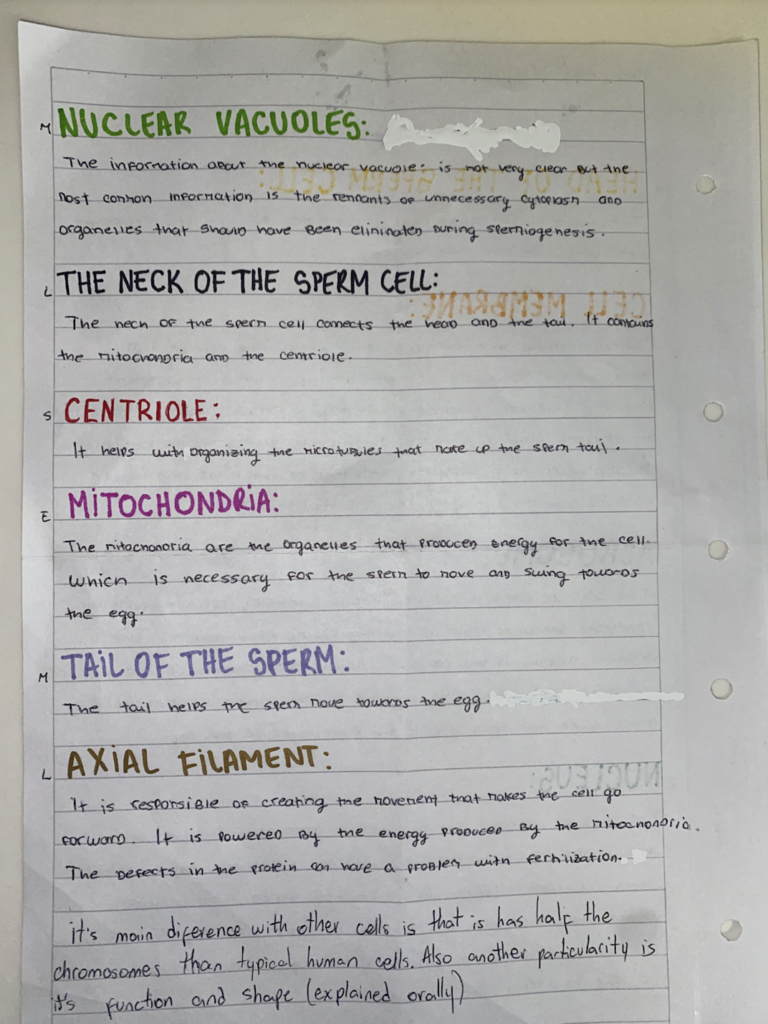 M NUCLEAR VACUOLES:
The information about the nuclear vacuole: is not very clear but the
most common information is the remnants of unnecessary cytoplasm and
organelles that should have been eliminated during spermiogenesis.
L THE NECK OF THE SPERM CELL:
The neck of the sperm cell connects the head and the tail. It contains
the mitochondria and the centriole.
S CENTRIOLE:
It helps with organizing the microtubules that make up the sperm tail.
E MITOCHONDRIA:
The mitochondria are the organelles that produced energy for the cell.
Which is necessary for the sperm to move and swing towards
the egg.
M TAIL OF THE SPERM:
The tail helps the sperm move towards the egg.
L AXIAL FILAMENT:
It is responsible of creating the movement that makes the cell go
forward. It is powered by the energy produced by the mitochondria.
The defects in the protein can have a problem with fertilization.
it's main diference with other cells is that is has half the
chromosomes than typical human cells. Also another particularity is
it's function and shape (explained orally)